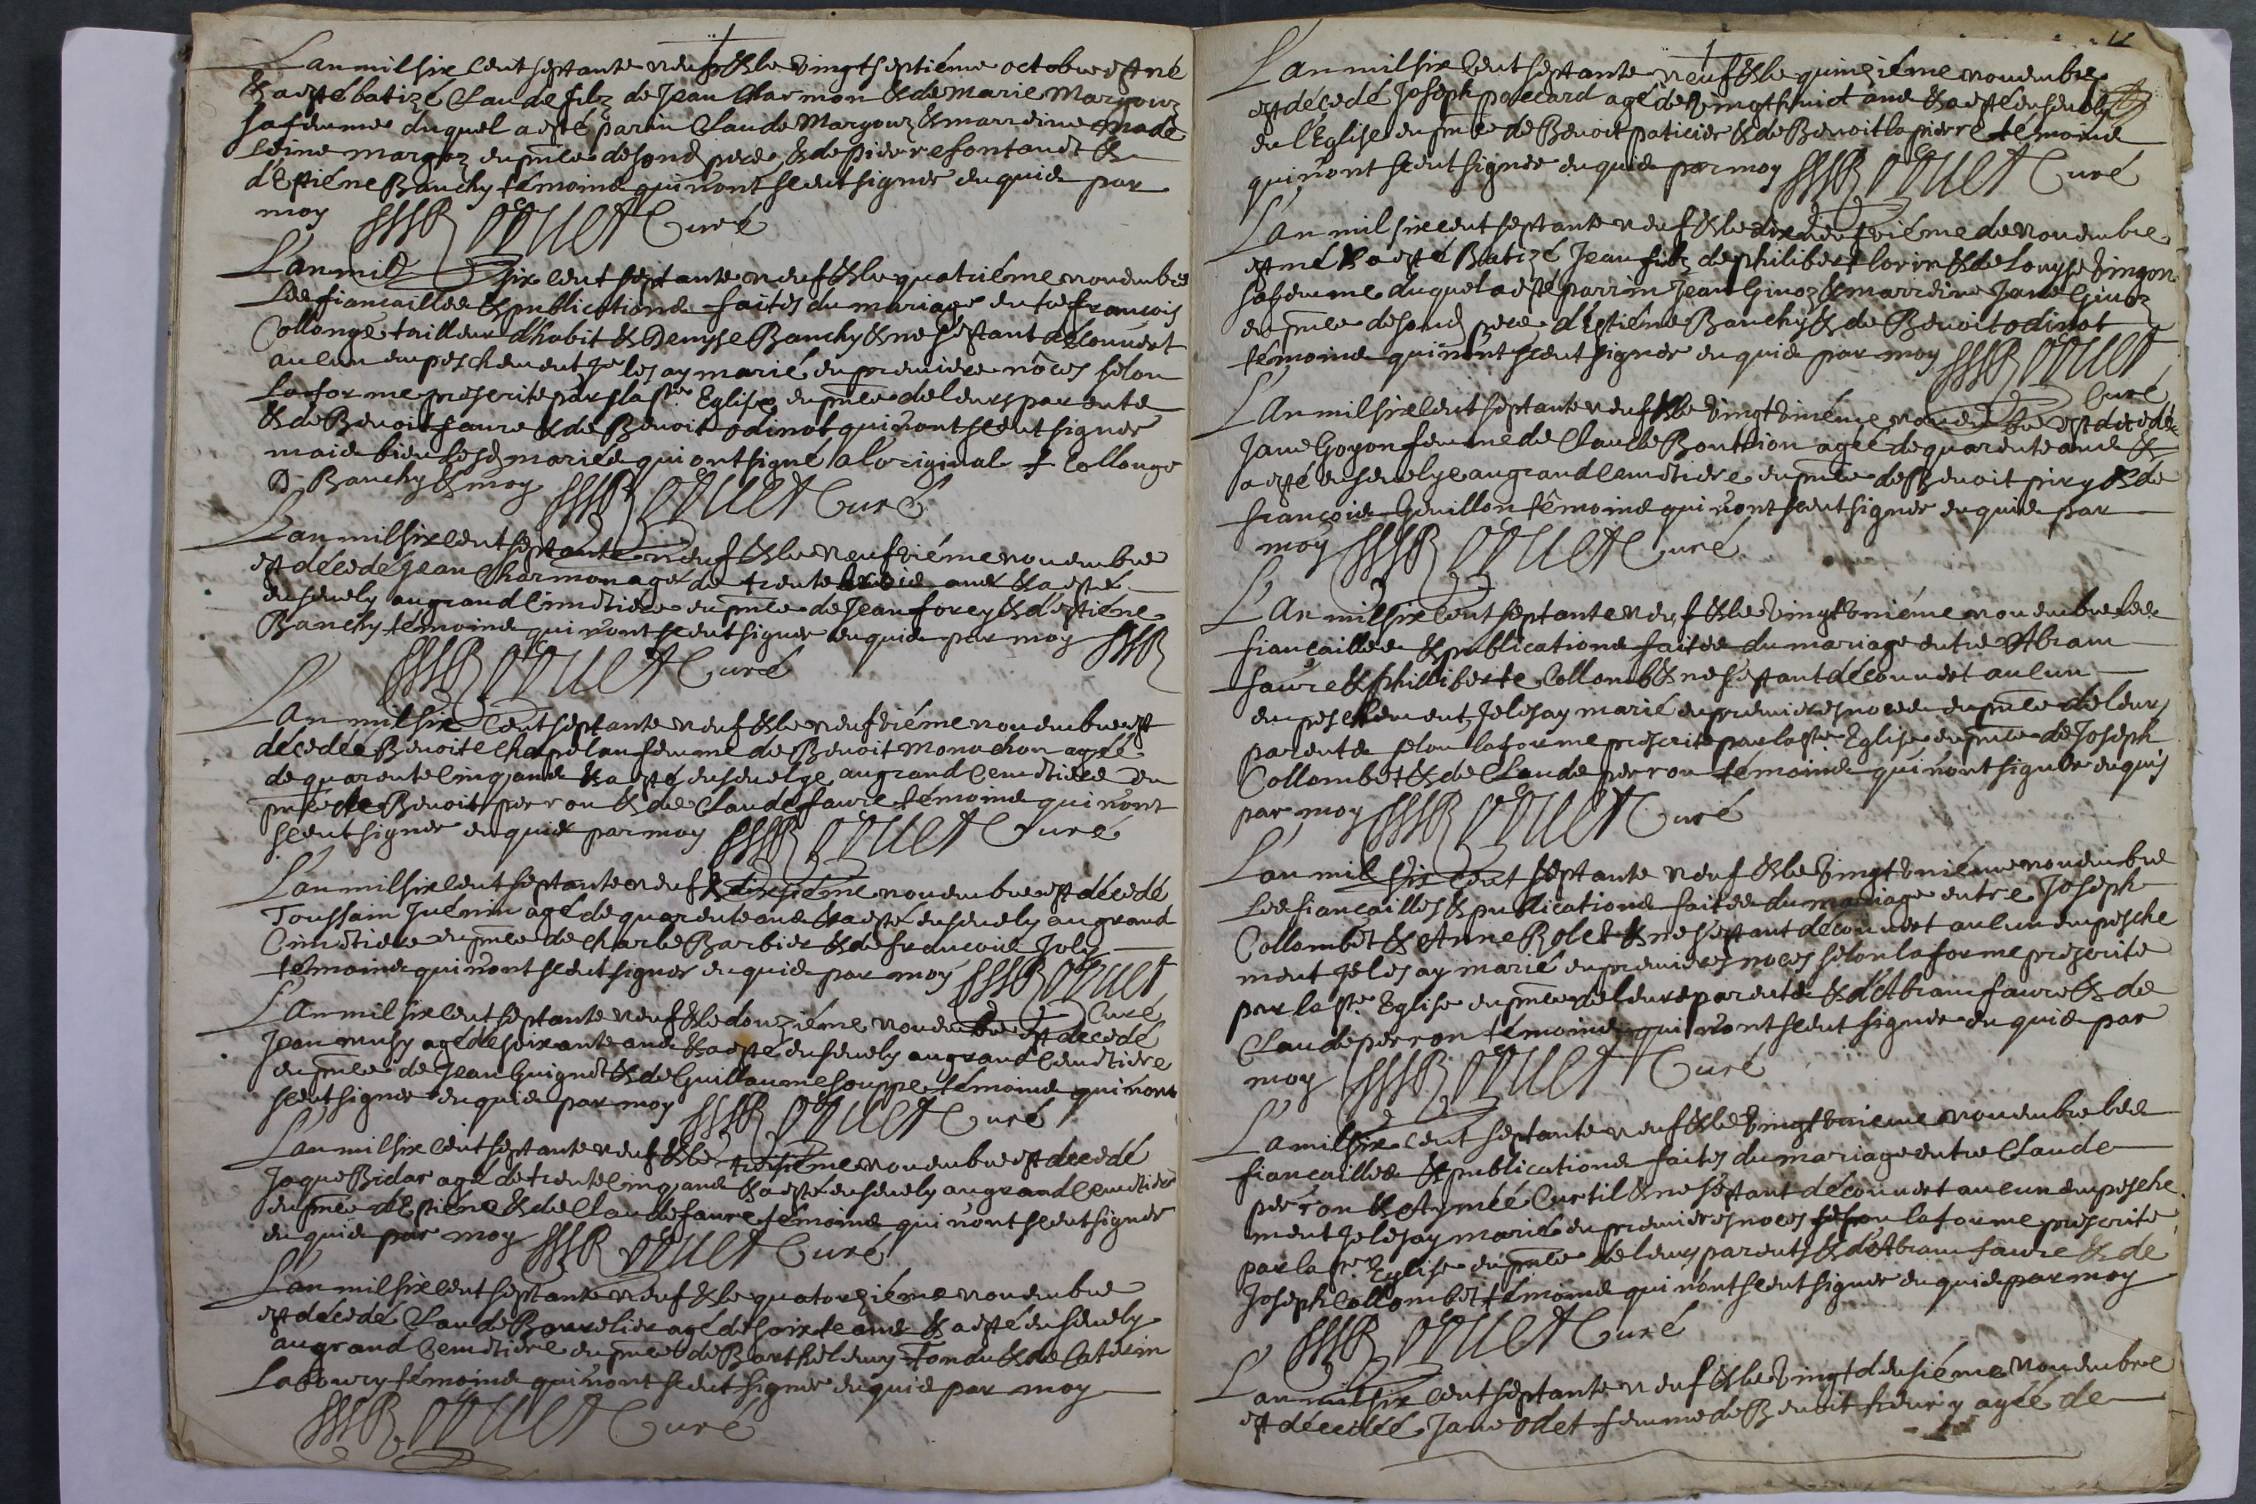 L'an mil six cent septante neuf & le vingt septiéme octobre est né
& a esté batizé Claude filz de Jean Charmon & de Marie Margouz
sa femme duquel a esté parin Claude Margouz & marreine Made
leine margoz en pñce de son d pere & de pierre fontanet &
d'Estiéne Banchy témoins qui n'ont sceut signer enquis par
moy Curé
L'an mil six cent septante neuf & le quatriéme novembre
les fiancailles & publications faites du mariage entre francois
Collonge tailleur d'habit & Denyse Banchy & ne s'estant découvert
aucun empeschement Je les ay marié en premiere nôces selon
la forme prescrite par la ste Eglise en pñce de leurs parents
& de Benoit faure & de Benoit odinot qui n'ont sceut signer
mais bien les d mariés qui ont signé a l'original f Collonge
D Banchy & moy Curé
L'an mil six cent septante neuf & le neufviéme novembre
est décedé Jean Charmon agé de trente trois ans & a esté
ensevely au grand Cimetiere en pñce de Jean forey & d'Estiéne
Banchy témoins qui n'ont sceut signer enquis par moy
Curé
L'an mil six cent septante neuf & le neufviéme novembre est
décedée Benoite Chapelan femme de Benoit Monachon agée
de quarente cinq ans & a esté ensevelye au grand Cemetiere en
pñce de Benoit perron & de Claude faure témoins qui n'ont
sceut signer enquis par moy Curé
L'an mil six cent septante neuf & dixiéme novembre est décedé
Toussain Juénin agé de quarente ans & a esté ensevely au grand
Cimetiere en pñce de Charle Barbier & de francois Joly
témoins qui n'ont sceut signer enquis par moy
Curé
L'an mil six cent septante neuf & le douziéme novembre est decedé
Jean musy agé de soixante ans & a esté ensevely au grand Cemetiere
en pñce de Jean Guignet & de Guillaume Souppe témoins qui n'ont
sceut signer enquis par moy Curé
L'an mil six cent septante neuf & le treisiéme novembre est decedé
Jaque Bidar agé de trente cinq ans & a esté ensevely au grand Cemetiere
en pñce d'Estiéne & de Claude faure témoins qui n'ont sceut signer
enquis par moy Curé
L'an mil six cent septante neuf & le quatorziéme novembre
est décedé Claude Bourrelier agé de soixte ans & a esté ensevely
au grand Cemetiere en pñce de Barthelemy Tondu & de Caterin
Laboury témoins qui n'ont sceut signer enquis par moy
Curé
L'an mil six Cent septante neuf & le quinziéme novembre
est décedé Joseph porcard agé de vingt huict ans & a esté ensevely
en l'Eglise en pñce de Benoit paticier & de Benoit lapierre témoins
qui n'ont sceut signer enquis par moy Curé
L'an mil six cent septante neuf & le dixneufviéme de novembre
est né & a esté Batizé Jean filz de philibert lorin & de Louyse vingon
sa femme duquel a esté parrin Jean Givoz & marreine Jane Givoz
en pñce de son d pere d'Estiéne Banchy & de Benoit odinot
témoins qui n'ont sceut signer enquis par moy
Curé
L'An mil six cent septante neuf & le vingt uniéme novembre est decedée
Jane Goyon femme de Claude Bonttion agée de quarente ans &
a esté ensevelye au grand cemetiere en pñce de Benoit piry & de
francois Gouillon témoins qui n'ont sceut signer enquis par
moy Curé
L'An mil six cent septante neuf & le vingt uniéme novembre les
fiançailles & publications faites du mariage entre Abram
faure & Philliberte Collomb & ne s'estant découvert aucun
empeschement, Je les ay marié en premieres noces en pñce de leurs
parents selon la forme prescrite par la ste Eglise en pñce de Joseph
Collombet & de Claude perron témoins qui n'ont signer enquis
par moy Curé
L'an mil six cent septante neuf & le vingt uniéme novembre
les fiancailles & publications faites du mariage entre Joseph
Collombet & Anne Bolet & ne s'estant découvert aucun empesche
ment Je les ay marié en premieres noces selon la forme prescrite
par la ste Eglise en pñce de leurs parents & d'Abram faure & de
Claude perron témoins qui n'ont sceut signer enquis par
moy Curé
L'a mil six cent septante neuf & le vingt unieme novembre les
fiancailles & publications faites du mariage entre Claude
perron & Aymée Curtil & ne s'estant découvert aucun empesche
ment Je les ay marié en premieres noces selon la forme prescrite
par la ste Eglise en pñce de leurs parents & d'Abram faure & de
Joseph Collombet témoins qui n'ont sceut signer enquis par moy
Curé
L'an mil six cent septante neuf & le vingt deusiéme novembre
est décedée Jane odet femme de Benoit fleury agée de